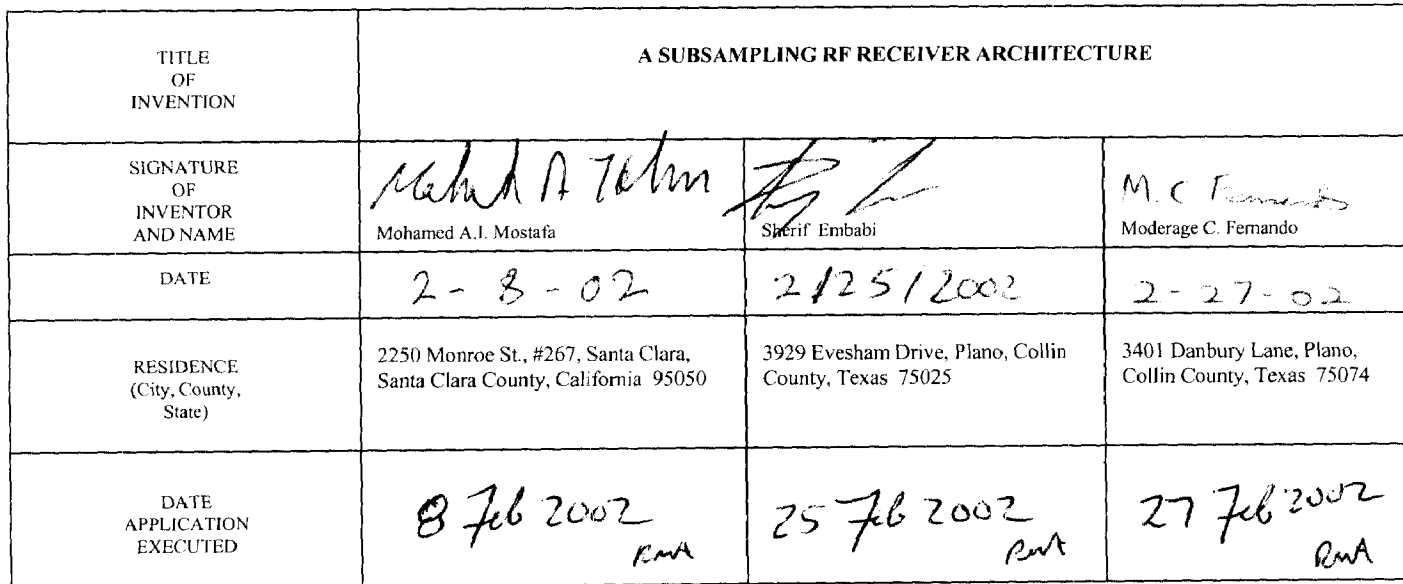 TITLE
OF
INVENTION
A SUBSAMPLING RF RECEIVER ARCHITECTURE
SIGNATURE
OF
INVENTOR
AND NAME
Mohamed A.I. Mostafa
Sherif Embabi
M. C Fernando
Moderage C. Fernando
DATE
2 - 8 - 02
2/25/2002
2 - 27 - 02
RESIDENCE
(City, County,
State)
2250 Monroe St., #267, Santa Clara,
Santa Clara County, California 95050
3929 Evesham Drive, Plano, Collin
County, Texas 75025
3401 Danbury Lane, Plano,
Collin County, Texas 75074
DATE
APPLICATION
EXECUTED
8 Feb 2002
25 Feb 2002
27 Feb 2002